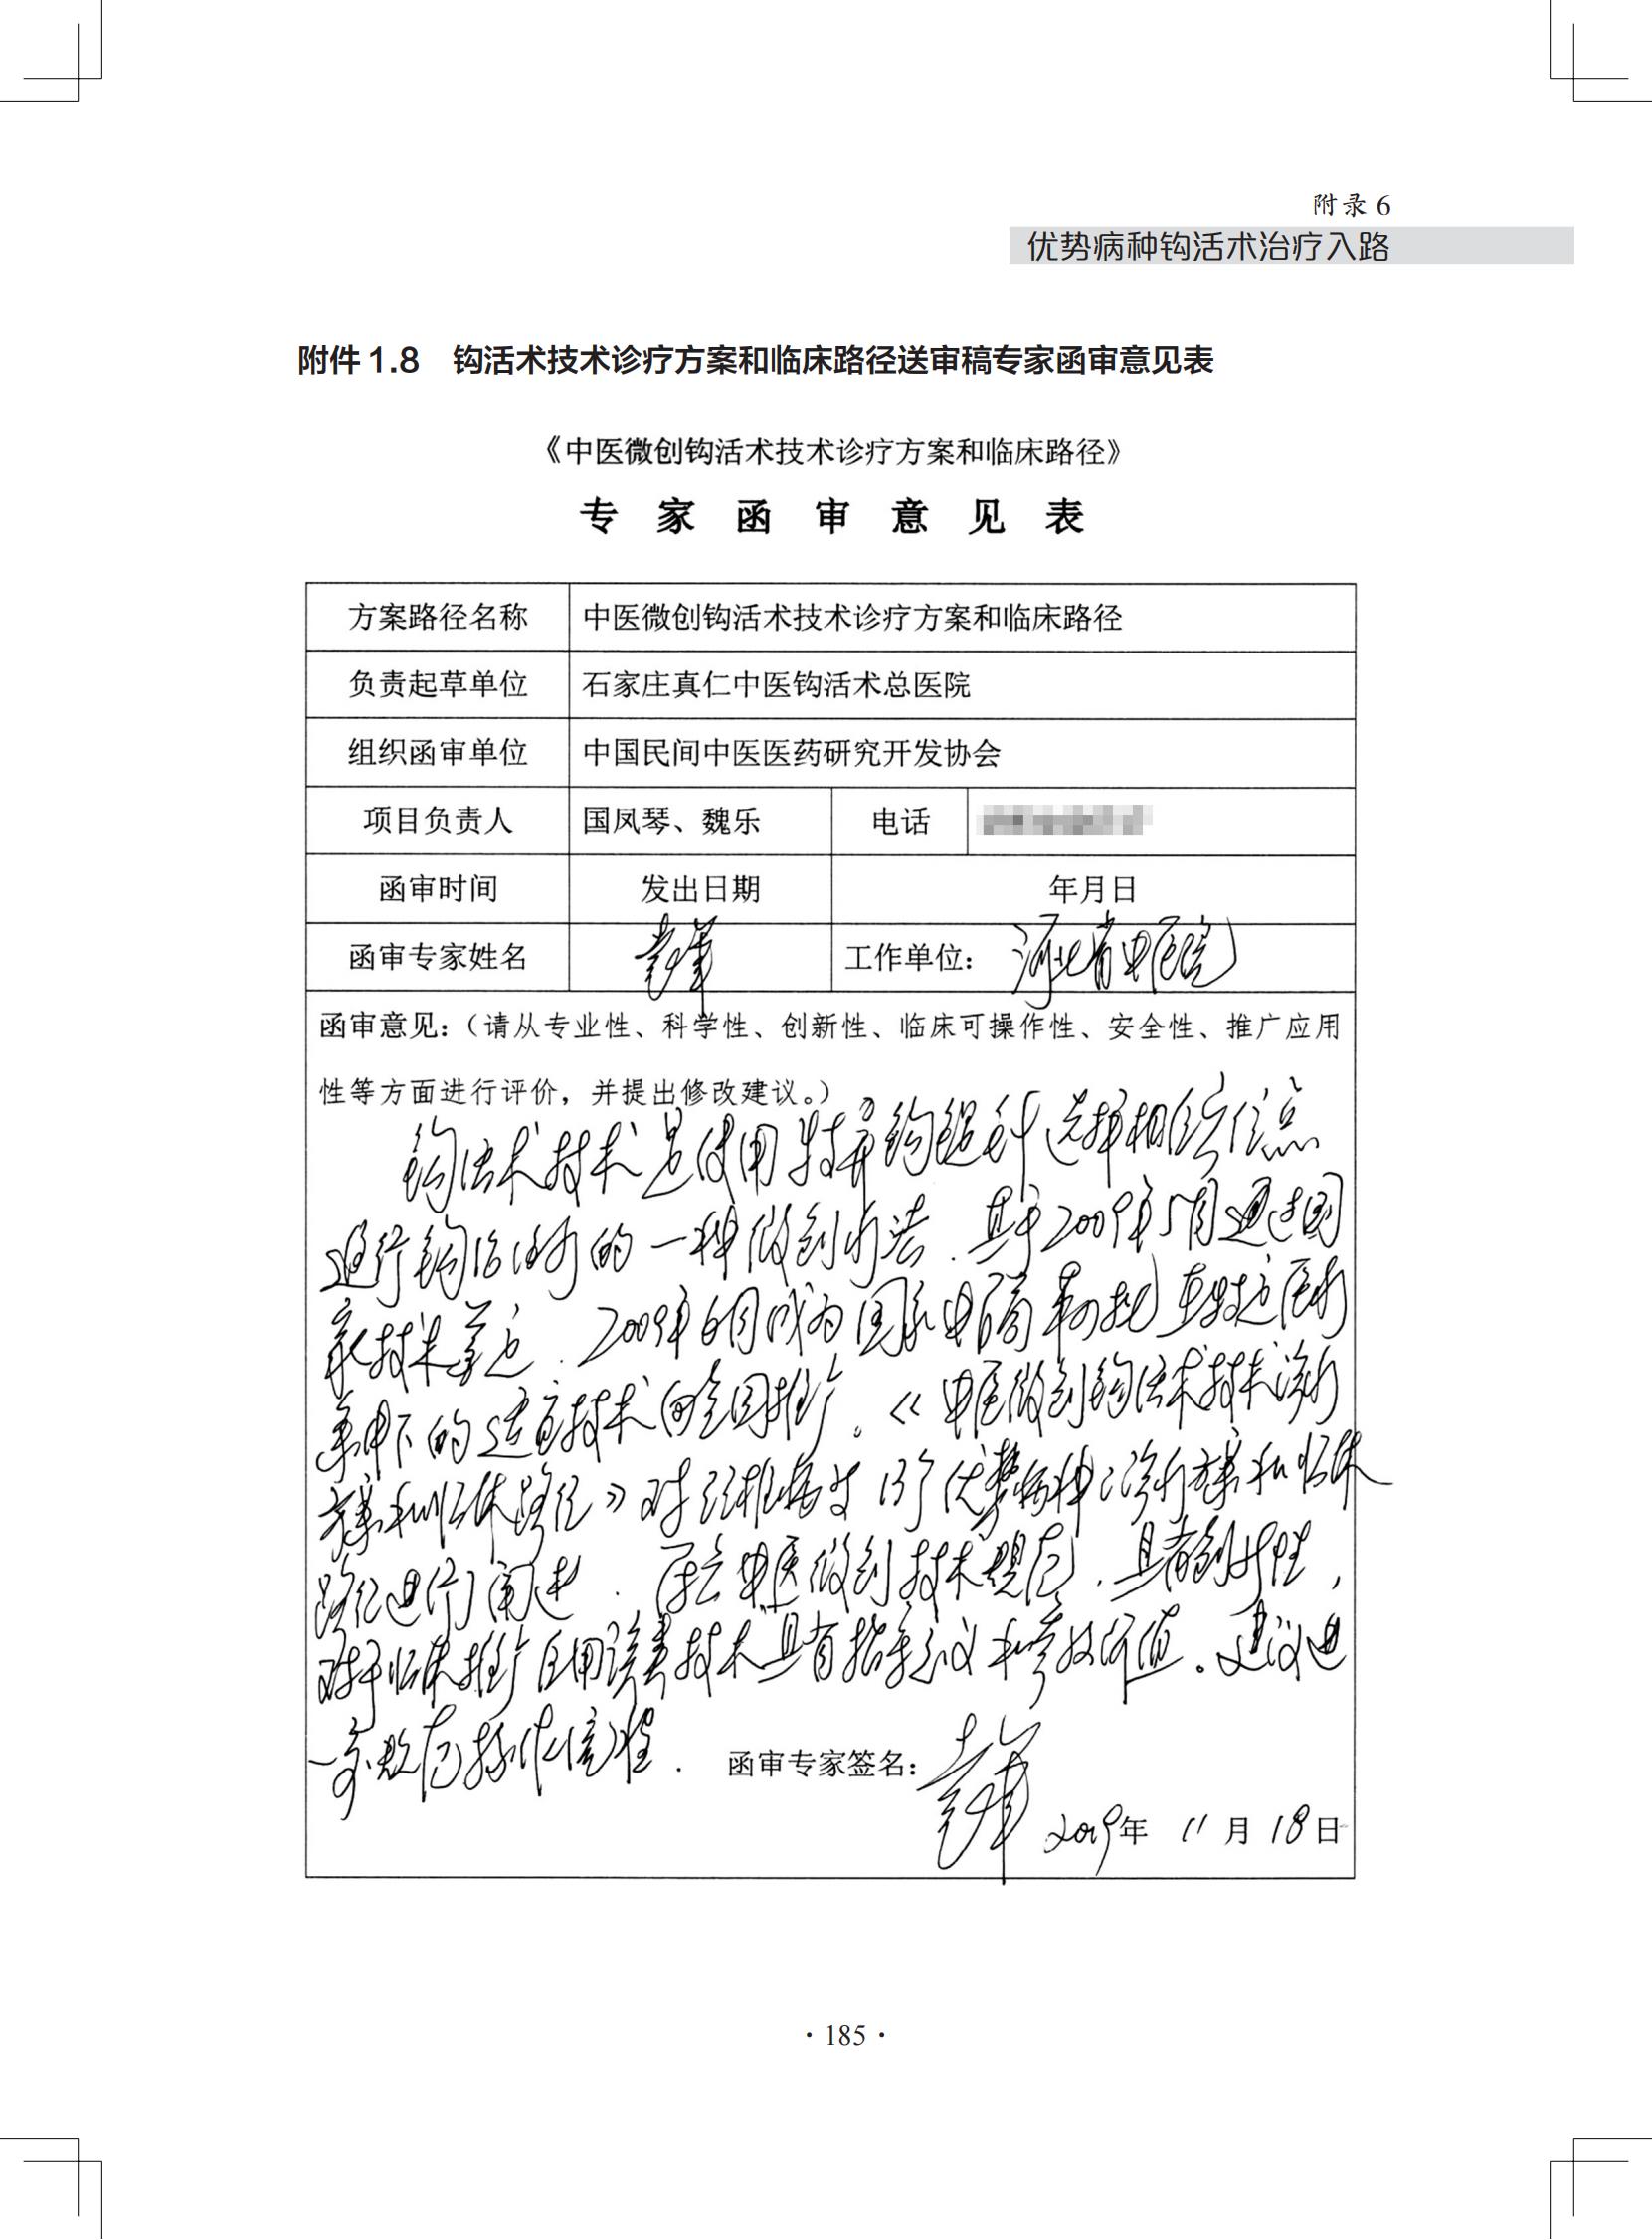 附录 6
优势病种钩活术治疗入路
附件 1.8 钩活术技术诊疗方案和临床路径送审稿专家函审意见表
《中医微创钩活术技术诊疗方案和临床路径》
专家函审意见表
方案路径名称 中医微创钩活术技术诊疗方案和临床路径
负责起草单位 石家庄真仁中医钩活术总医院
组织函审单位 中国民间中医医药研究开发协会
项目负责人 国凤琴、魏乐 电话
函审时间 发出日期 年月日
函审专家姓名 工作单位：河北省中医院
函审意见：（请从专业性、科学性、创新性、临床可操作性、安全性、推广应用
性等方面进行评价，并提出修改建议。）
钩活术技术是使用特异钩鍉针选择相应位点
进行钩治治疗的一种微创疗法.其于2009年5月通过国
家技术鉴定.2009年6月成为国家中管局
的适宜技术向全国推广。《中医微创钩活术技术诊疗
方案和临床路径》对颈椎病等13个优势病种诊疗方案和临床
路径进行阐述.符合中医微创技术规范.具有创新性，
对于临床推广应用该类技术具有指导意义和参考价值。建议进
一步规范操作流程.
函审专家签名：
2019年 11月 18日
· 185 ·